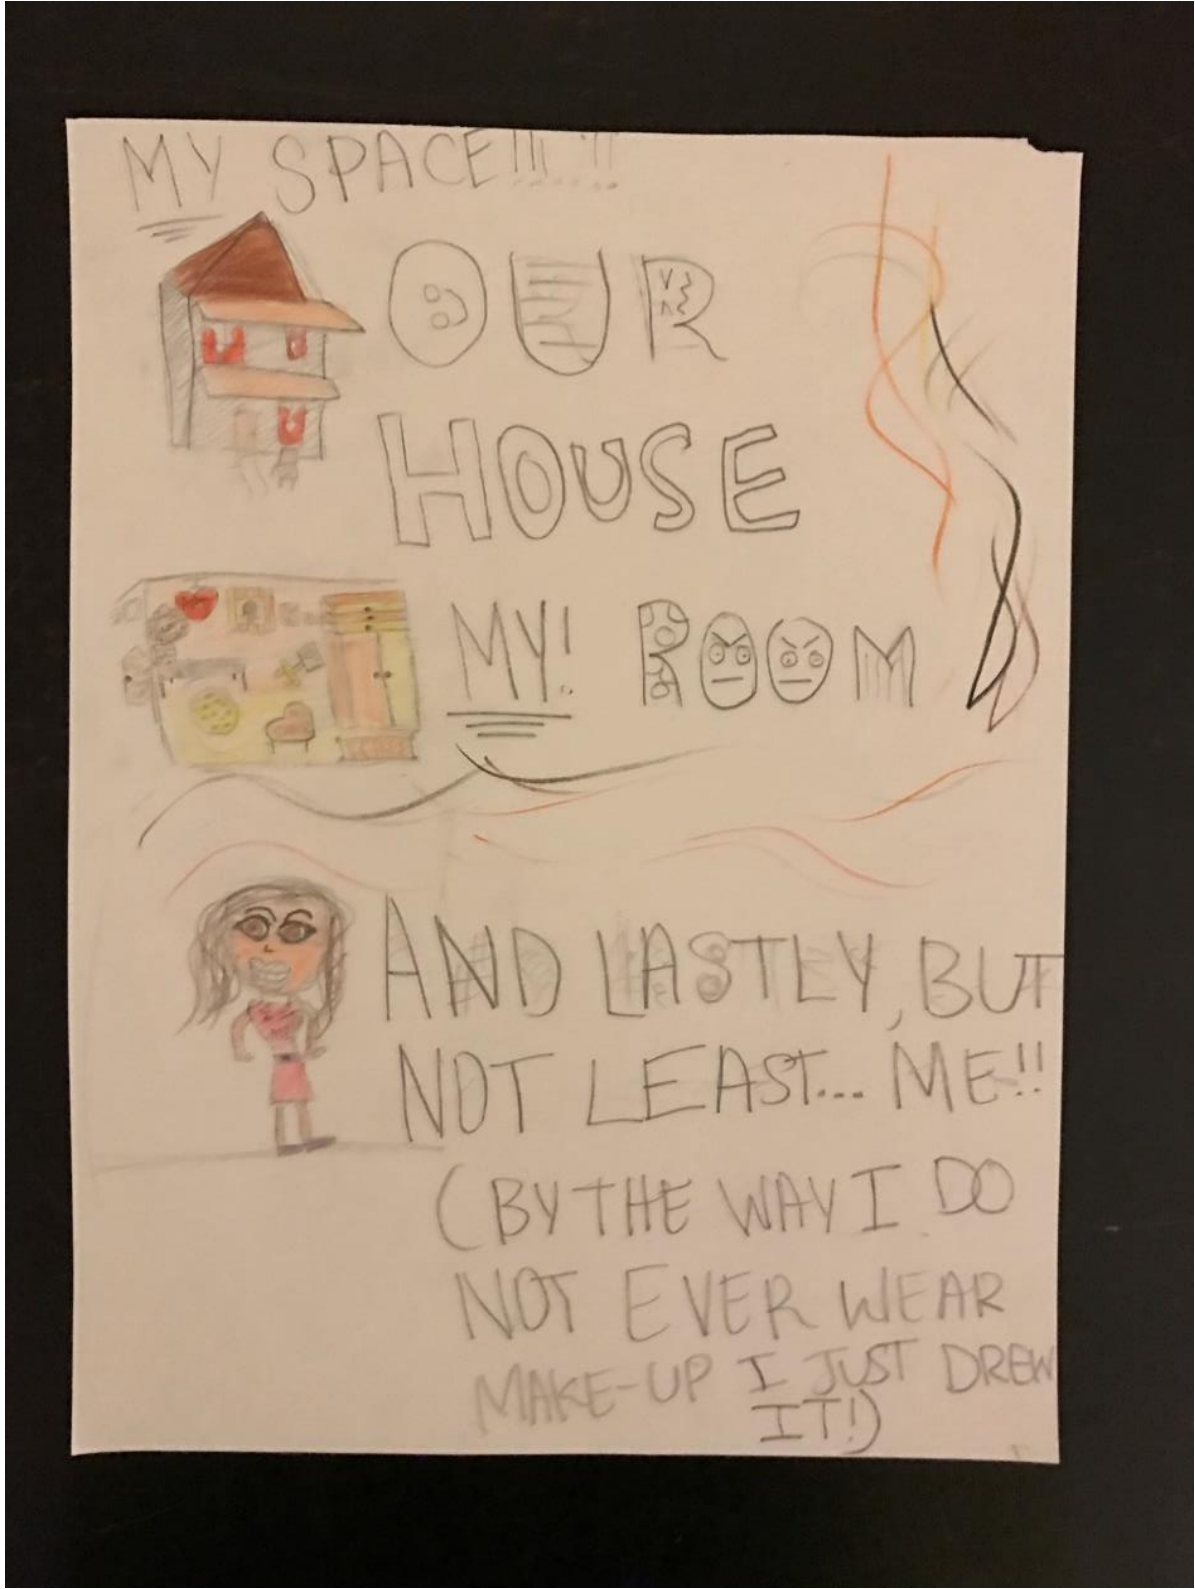 MY SPACE!!!!!
OUR
HOUSE
MY! ROOM
AND LASTLY, BUT
NOT LEAST... ME!!
(BY THE WAY I DO
NOT EVER WEAR
MAKE-UP I JUST DREW
IT!)